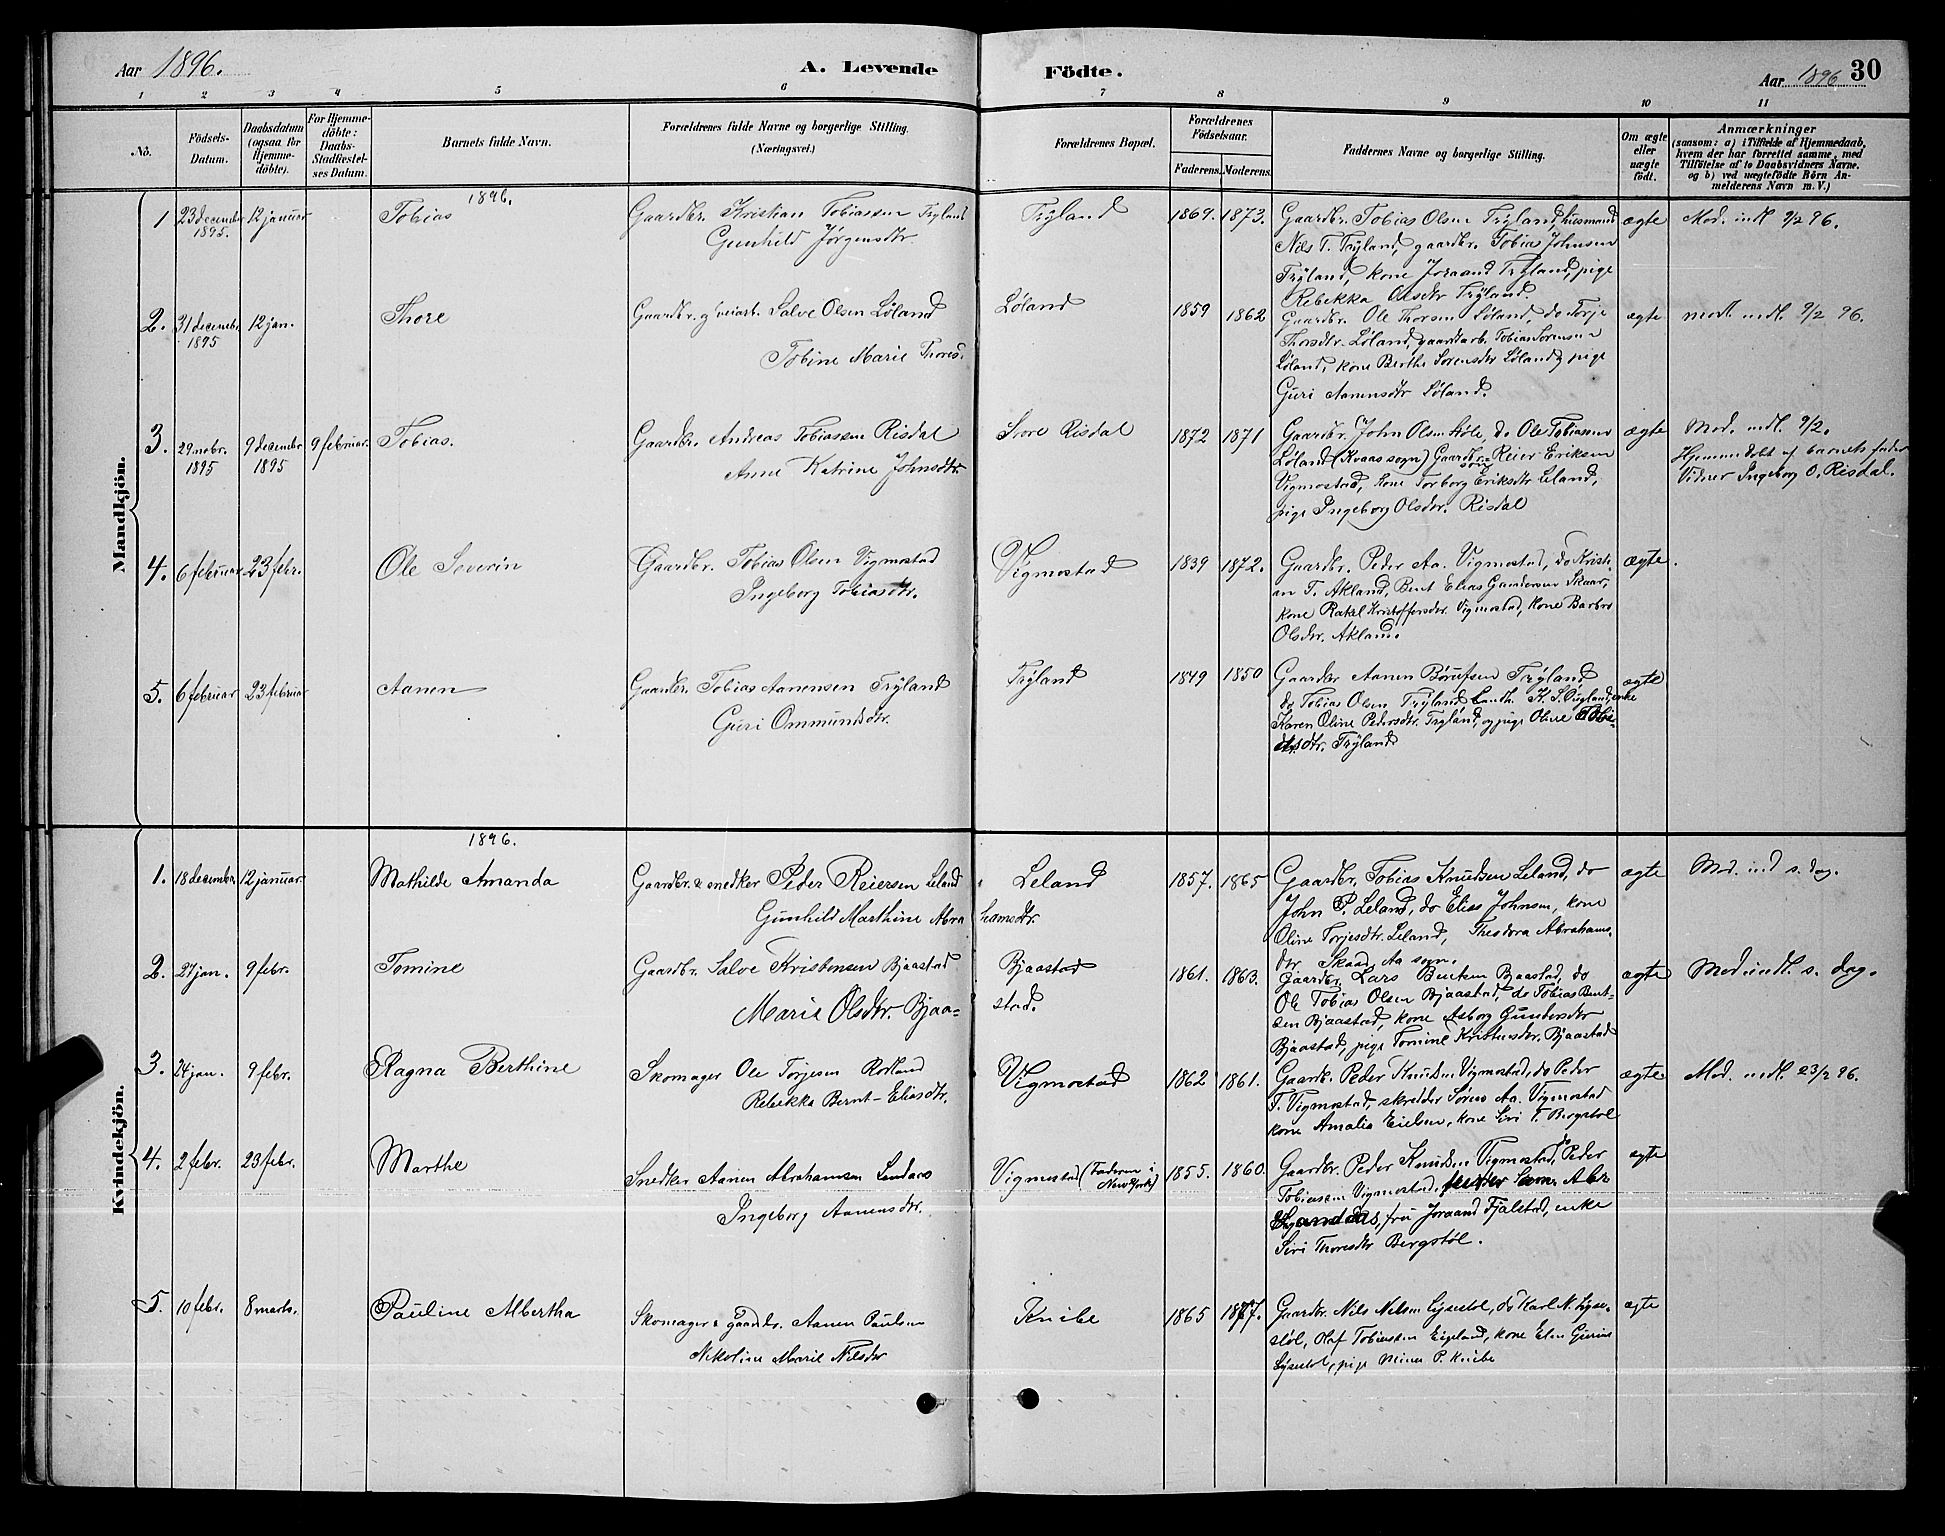 Aar 1896.
A. Levende Födte.
Aar 1896 30
1 2 3 4 5 6 7 8 9 10 11
No.
Födsels-
Datum.
Daabsdatum
(ogsaa for
Hjemme-
döbte).
For Hjemme-
döbte:
Daabs-
Stadfæstel-
ses Datum.
Barnets fulde Navn.
Forældrenes fulde Navne og borgerlige Stilling.
(Næringsvei.)
Forældrenes Bopæl.
Forældrenes
Födselsaar.
Faderens. Moderens.
Faddernes Navne og borgerlige Stilling.
Om ægte
eller
uægte
födt.
Anmærkninger
(saasom: a) i Tilfælde af Hjemmedaab,
hvem der har forrettet samme, med
Tilföielse af to Daabsvidners Navne.
og b) ved uægtefödte Börn An-
melderens Navn m. V.)
Mandkjön.
1896.
1 23 december 12 januar Tobias
1895.
Gaardbr. Kristian Tobiassen Tryland
Gunhild Jørgensdtr.
Tryland 1869. 1873.
Gaardbr. Tobias Olsen Tryland, husmand
Nils T. Tryland, gaardbr. Tobias Johnsen
Tryland, kone Joraand Tryland, pige
Rebekka Olsdtr Tryland.
ægte Mod. indl 9/2 96.
2. 31 decembr 12 jan. Thore
1895
Gaardbr. og veiarb. Salve Olsen Løland
Tobine Marie Thores.
Løland 1859 1862
Gaardbr. Ole Thorsen Løland, do Torje
Thorsdtr. Løland, gaardarb. Tobias Sørensen
Løland, kone Berthe Sørensdtr Løland, pige
Guri Aanensdtr Løland.
ægte mod. indl. 9/2 96.
3. 29 nobr. 9 decembr 9 februar. Tobias.
1895 1895
Gaardbr. Andreas Tobiassen Risdal
Anne Katrine Johnsdtr.
Søre Risdal 1872 1871
Gaardbr. John Olsen Høle, do Ole Tobiassen
Løland (Kvaas sogn) Gaardbr. søn Reier Eriksen
Vigmostad, kone Torborg Eriksdtr Leland,
pige Ingeborg Olsdtr. Risdal
ægte Mod. indl. 9/2.
Hjemmedøbt af barnets fader
Vidner Ingeborg O. Risdal.
4. 6 februar 23 febr. Ole Severin
Gaardbr. Tobias Olsen Vigmostad
Ingeborg Tobiasdtr.
Vigmostad 1839 1872.
Gaardbr. Peder Aa. Vigmostad, do Kristi-
an T. Akland, Bent Elias Gundersen Skaar,
kone Rakel Kristoffersdtr. Vigmostad, kone Barbro
Olsdtr. Akland.
ægte.
5. 6 februar 23 februar Aanen
Gaardbr. Tobias Aanensen Tryland
Guri Ommundsdtr.
Tryland 1849 1850
Gaardbr Aanen Børufsen Tryland
do Tobias Olsen Tryland Landh. K. S. Dugland, enke
Karen Oline Pedersdtr. Tryland, og pige Oline Tobi-
asdtr. Tryland
ægte
Kvindekjön.
1896.
1. 18 decembr. 12 januar. Mathilde Amanda
Gaardbr. & snedker Peder Reiersen Leland
Gunhild Marthine Abra hamsdtr.
Leland 1857. 1865
Gaardbr. Tobias Knudsen Leland, do
John P. Leland, do Elias Johnsen, kone
Oline Torjesdtr. Leland, Theodora Abrahams-
dtr Skaad, Aa sogn.
ægte Mod. ind s. dag.
2. 27 jan. 9 febr. Tomine
Gaardbr. Salve Kristensen Bjaastad
Marie Olsdtr. Bjaa= stad.
Bjaastad 1861. 1863.
Gaardbr. Lars Bentsen Bjaastad, do
Ole Tobias Olsen Bjaastad, do Tobias Bent-
sen Bjaastad, kone Asborg Gundersdtr
Bjaastad, pige Tomine Kristensdtr. Bjaastad
ægte Mod. indl. s. dag.
3. 24 jan. 9 febr. Ragna Berthine
Skomager Ole Torjesen Rosland
Rebekka Bernt-Eliasdtr.
Vigmostad 1862 1861.
Gaardb. Peder Knudsen Vigmostad, do Peder
T. Vigmostad, skredder Søren Aa. Vigmostad
kone Amalia Eielsen, kone Siri T. Bergstøl
ægte Mod. indl. 23/2 96.
4. 2 febr. 23 febr. Marthe
Snedker Aanen Abrahamsen Landaas
Ingeborg Aanensdtr.
Vigmostad (Faderen i
New York) 1855. 1860.
Gaardbr. Peder Knudsen Vigmostad, do Peder
Tobiassen Vigmostad, Abr
Landaas, fru Joraand Fjalstad, enke
Siri Thoresdtr Bergstøl.
ægte
5. 10 febr. 8 marts. Pauline Albertha
Skomager & gaardbr. Aanen Paulsen
Nikoline Marie Nilsdtr
Knibe 1865 1877.
Gaardbr. Nils Nilsen Lysestøl, do Karl N. Lyse-
støl, Olaf Tobiassen Eigeland, kone Elen
Lysestøl, pige Mina P. Knibe
ægte